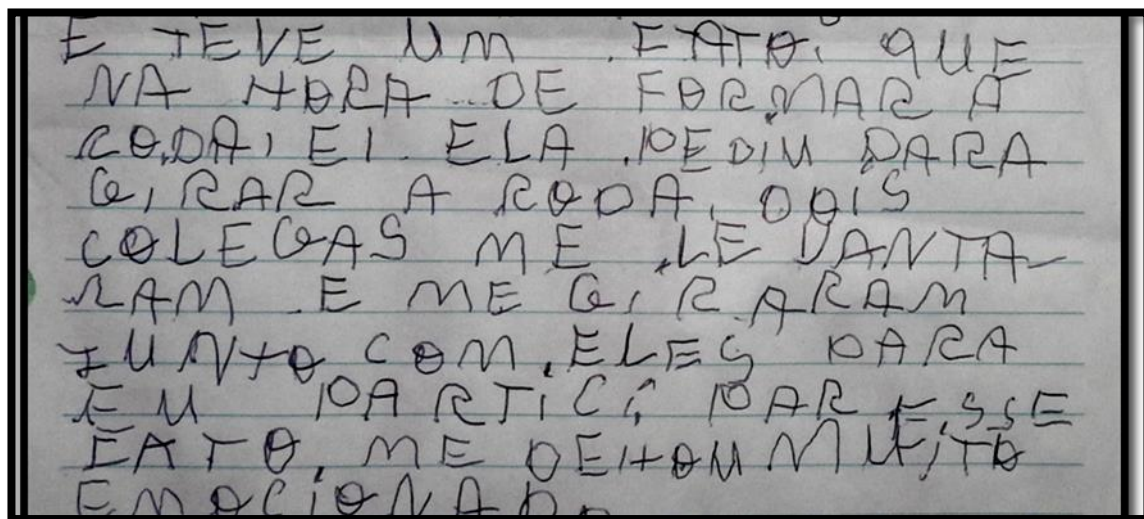 E TEVE UM FATO. QUE
NA HORA DE FORMAR A
RODA, EI. ELA PEDIU PARA
GIRAR A RODA, DOIS
COLEGAS ME LEVANTA-
RAM E ME GIRARAM
JUNTO COM ELES PARA
EU PARTICIPAR ESSE
FATO. ME DEIXOU MUITO
EMOCIONADO